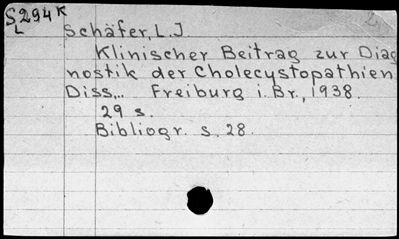 S294K
L
Schäfer, L.J.
Klinischer Beitrag zur Diag
nostik der Cholecystopathien
Diss... Freiburg i. Br., 1938.
29 s.
Bibliogr. s. 28.